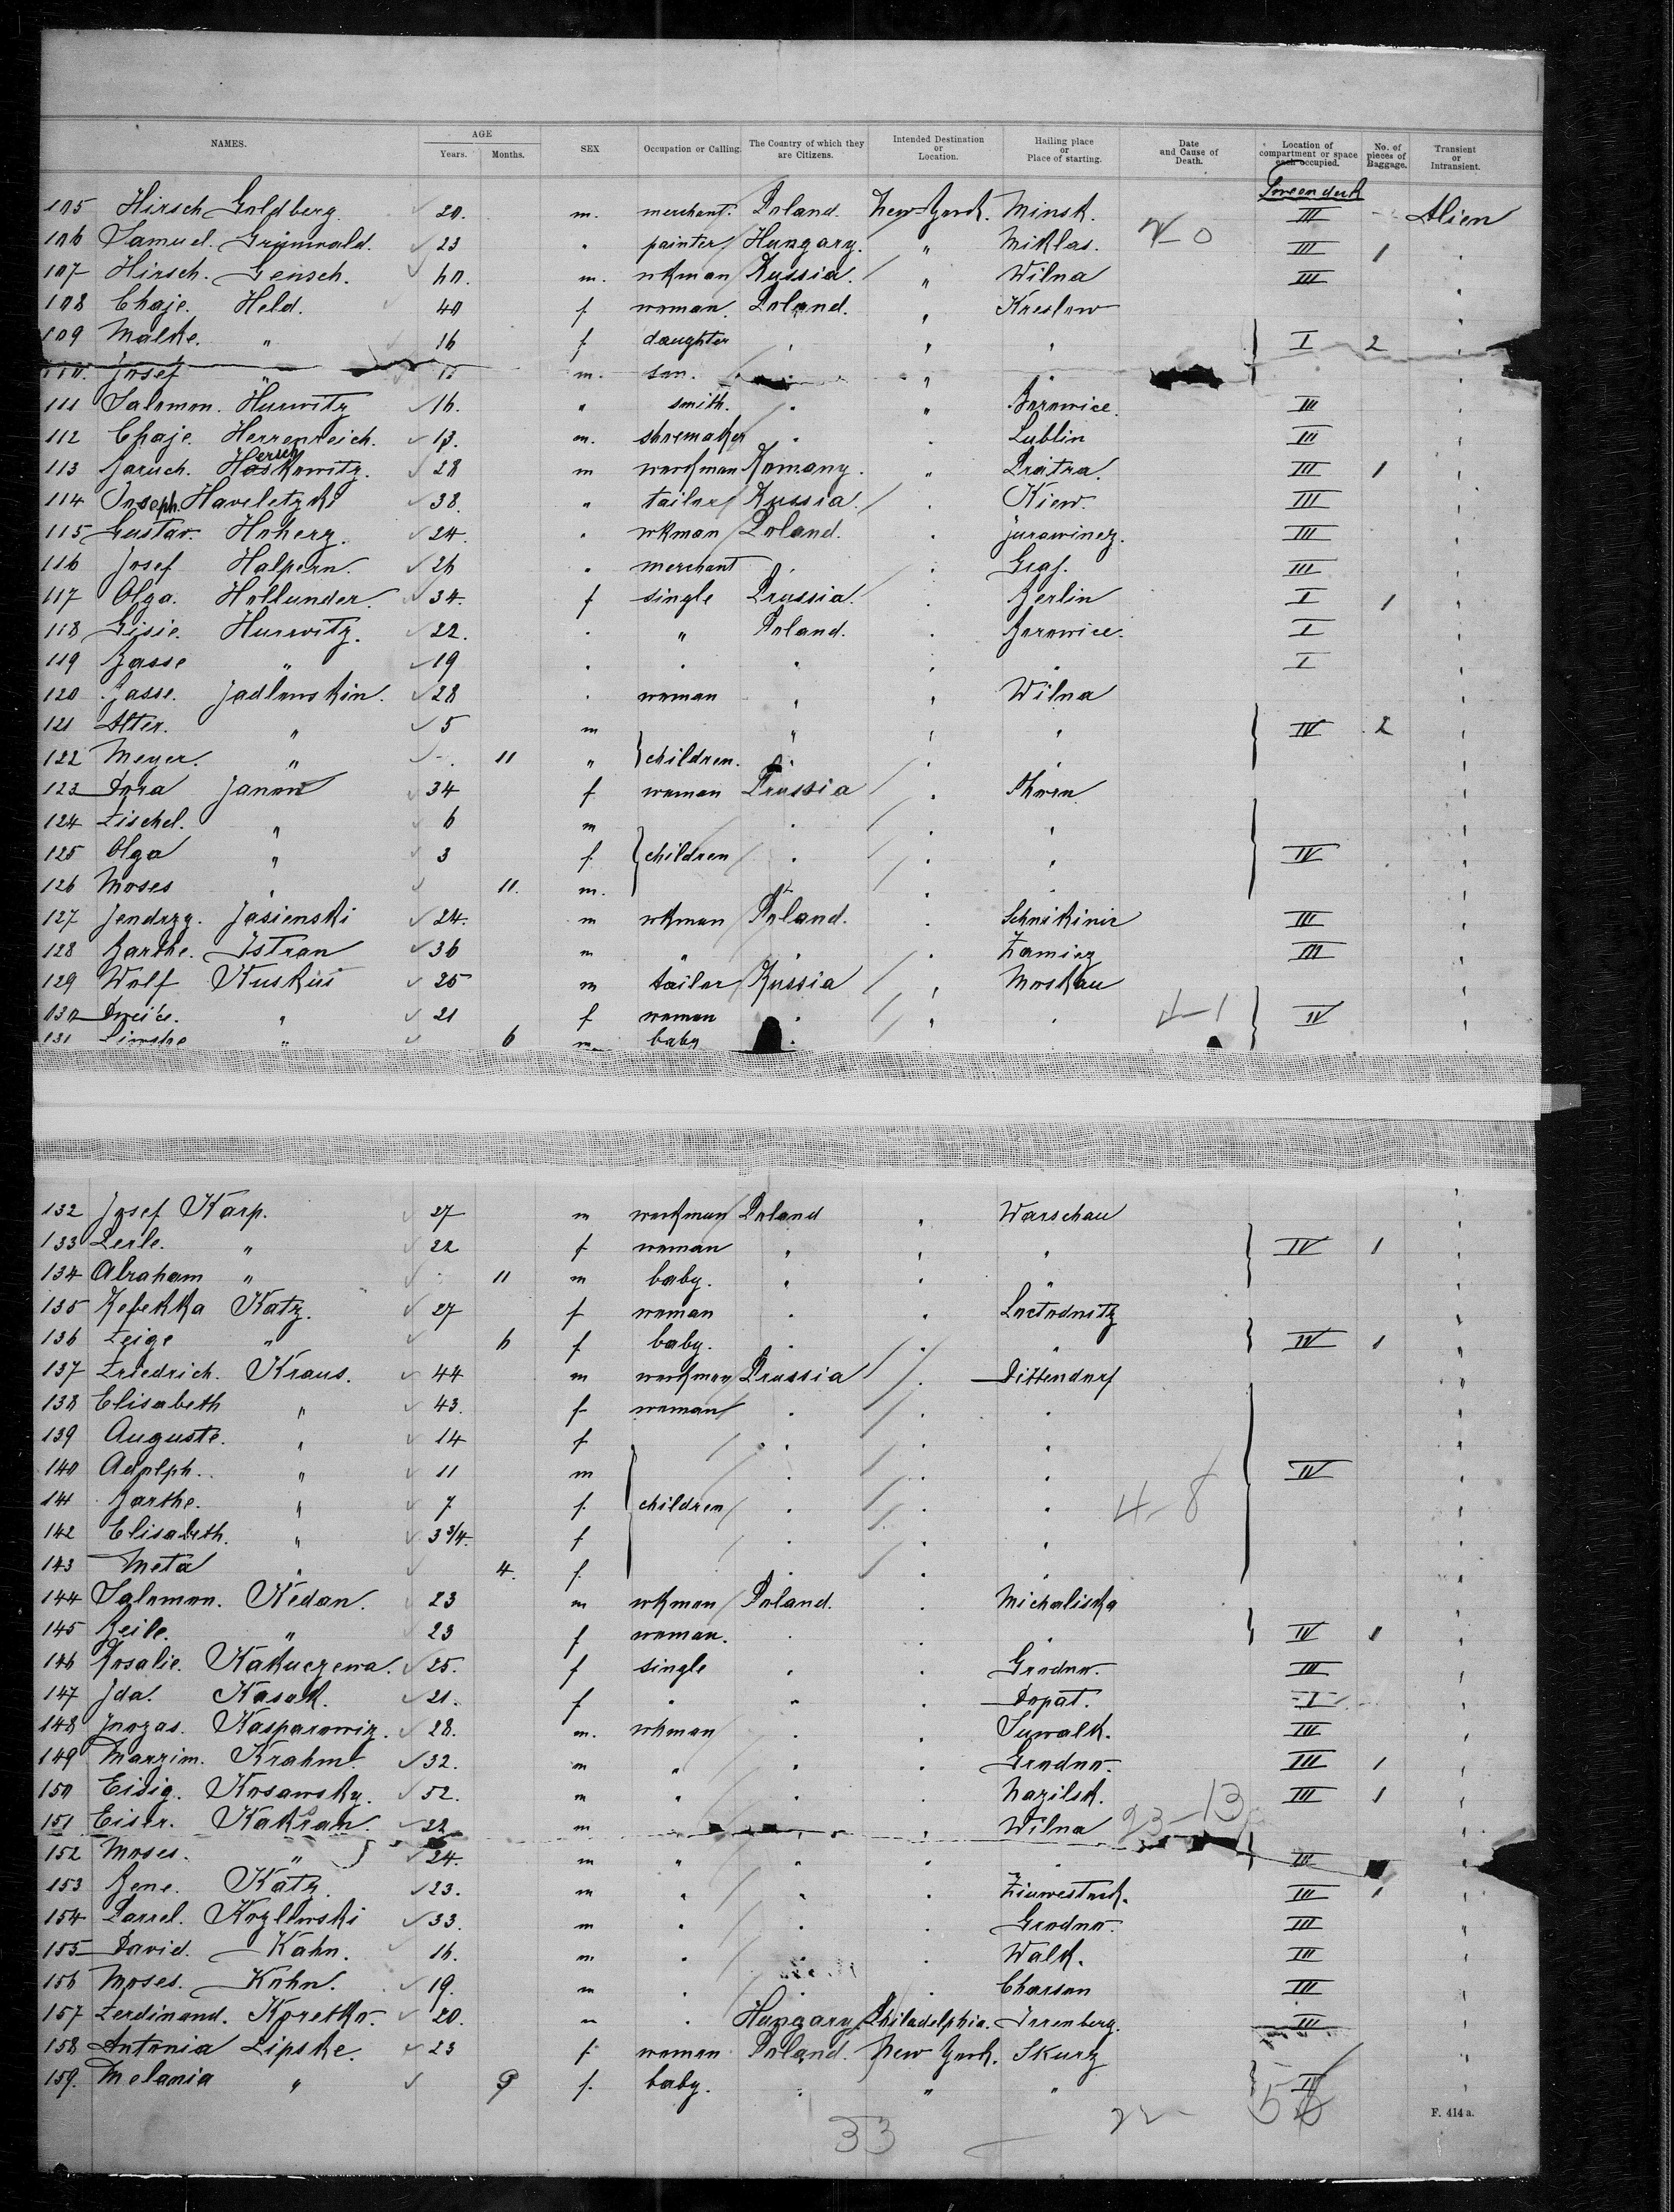 NAMES. AGE Years. Months. SEX Occupation or Calling. The Country of which they are Citizens. Intended Destination or Location. Hailing place or Place of starting. Date and Cause of Death. Location of compartment or space each occupied. No. of pieces of Baggage. Transient or Intransient.
105 Hirsch Goldberg. 20. m. merchant. Poland. New-York. Minsk. III - Alien
106 Samuel. Grünwald. 23 " painter Hungary. " Miklas. III 1 "
107 Hirsch. Gensch. m. wkman Russia. " Wilna III
108 Chaje. Held. 40 f woman. Poland. " Kreslow "
109 Malke. " 16 f daughter " " " I 2 "
110. Josef " m. son. " " " "
111 Salomon. Hurwitz 16. " smith. " " III "
112 Chaje. Herrenreich. 13. m. shoemaker " " Lublin III "
113 Baruch. 28 m workman Romany. " III 1 "
114 Joseph. Haveletzki 38. " tailor Russia. " Kiew. III "
115 Gustav. Hoherz. 24. " wkman Poland. " III "
116 Josef Halpern. 26 " merchant " " Graj. III "
117 Olga. Hollunder. 34. f single Prussia. " Berlin I 1 "
118 Gisie. Hurwitz. 22. " " Poland. " I "
119 Basse " 19 " " " " " I "
120 Jasse. Jadlowskin. 28 " woman " " Wilna "
121 Alter. " 5 m " " " IV 2 "
122 Meyer. " - 11 " children. " " " "
123 Dora Janow 34 f woman Prussia " Thorn "
124 Fischel. " 6 m " " " "
125 Olga " 3 f children " " " IV "
126 Moses " 11. m. " " " "
127 Jendrzy. Jasienski 24. m wkman Poland. " III "
128 Barthe. Istran 36 m " " " III "
129 Wolf Kuskus 25 m tailor Russia " Moskau "
130 " 21 f woman " " " 4-1 IV "
131 " 6 m baby "
132 Josef Karp. 27 m workman Poland " Warschau "
133 Perle. " 22 f woman " " " IV 1 "
134 Abraham " 11 m baby. " " " "
135 Rebekka Katz. 27 f woman " " "
136 Feige " 6 f baby. " " " IV 1 "
137 Friedrich. Kraus. 44 m workman Prussia " Dittendorf "
138 Elisabeth " 43. f woman " " " "
139 Auguste. " 14 f " " " "
140 Adolph. " 11 m " " " IV "
141 Barthe. " 7 f. children " " " 4-8 "
142 Elisabeth. " 3 3/4. f " " " "
143 Meta " 4. f. " " " "
144 Salomon. Kedan. 23 m wkman Poland. " Michaliska "
145 Beile. " 23 f woman. " " " IV 1 "
146 Rosalie. Kakuczewa. 25. f single " " Grodno. III "
147 Ida. Kasak. 21. f " " " Dopat. I "
148 Kasparowiz. 28. m. wkman " " Suwalk. III "
149 Krahm. 32. m " " " Grodno. III 1 "
150 Eisig. Kosawsky. 52. m " " " Nazilsk. 93-13 III 1 "
151 Kakran. 22 m " " " Wilna "
152 Moses. " 24. m " " " " III "
153 Bene. Katz. 23. m " " " III 1 "
154 Kozlowski 33. m " " " Grodno. III "
155 David. Kahn. 16. m " " " Walk. III "
156 Moses. Kohn. 19. m " " " Charson III "
157 Ferdinand. Koretko. 20. m " Hungary. Philadelphia. Irrenberg. III "
158 Antonia Lipske. 23 f woman Poland. New York. Skurz "
159. Melania " 9 f. baby. " " " IV "
33
F. 414 a.